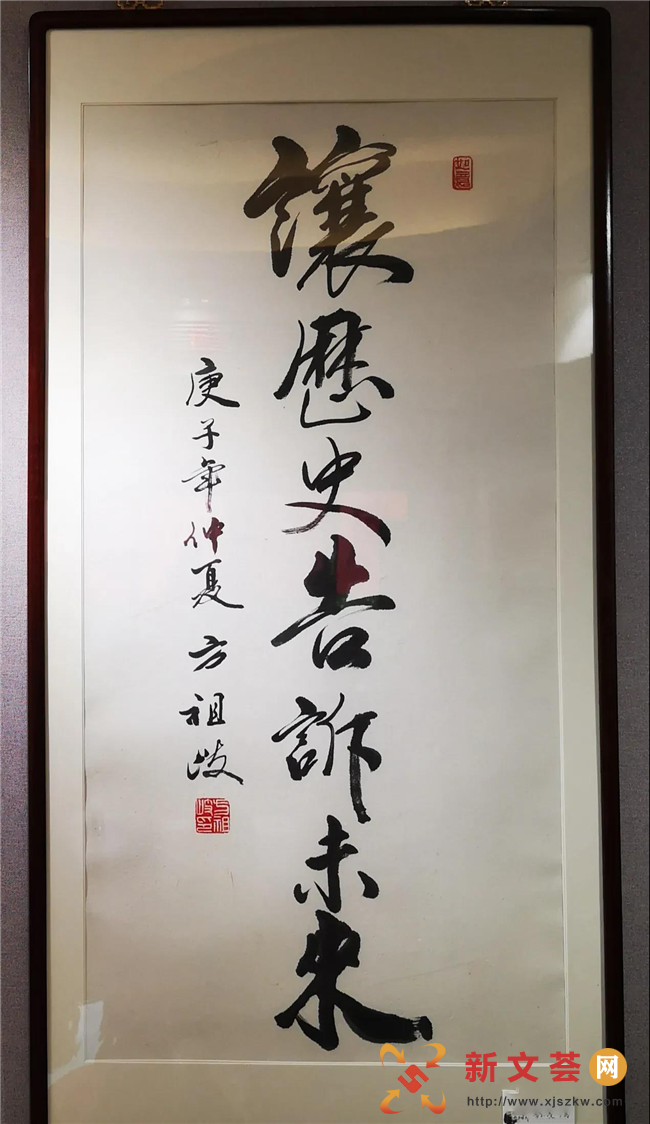 讓歷史告訴未来
庚子年仲夏 方祖岐
方祖岐印
新文荟网
http://www.xjszkw.com